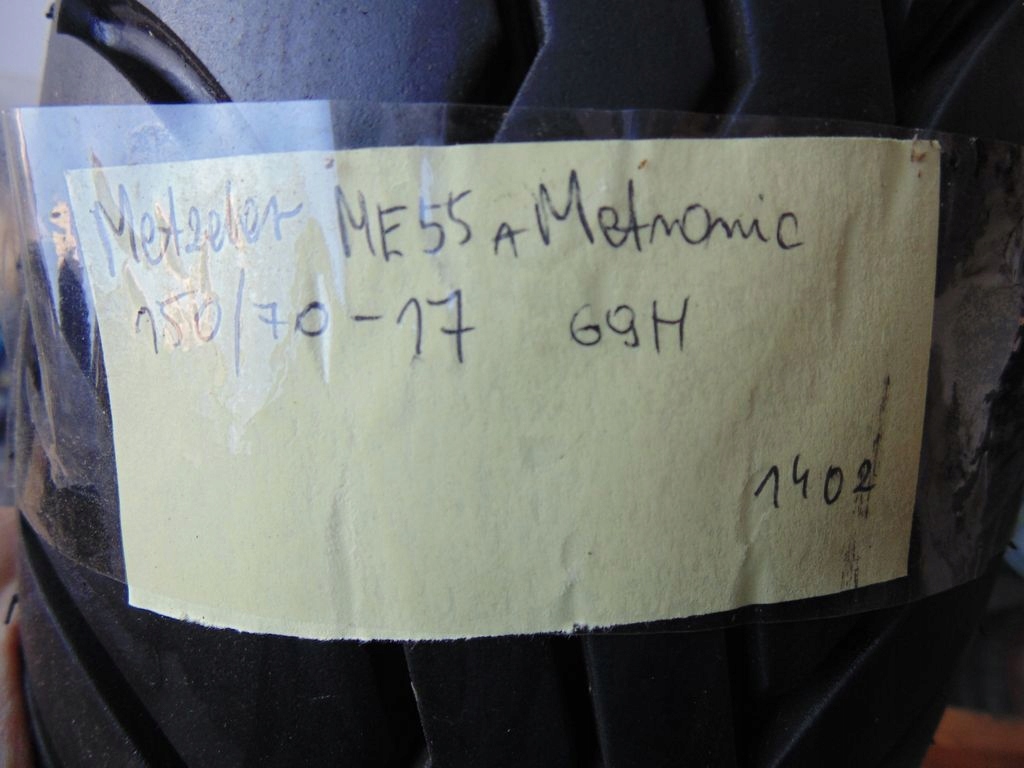 Metzeler ME55 A Metronic
150/70-17 69H
1402